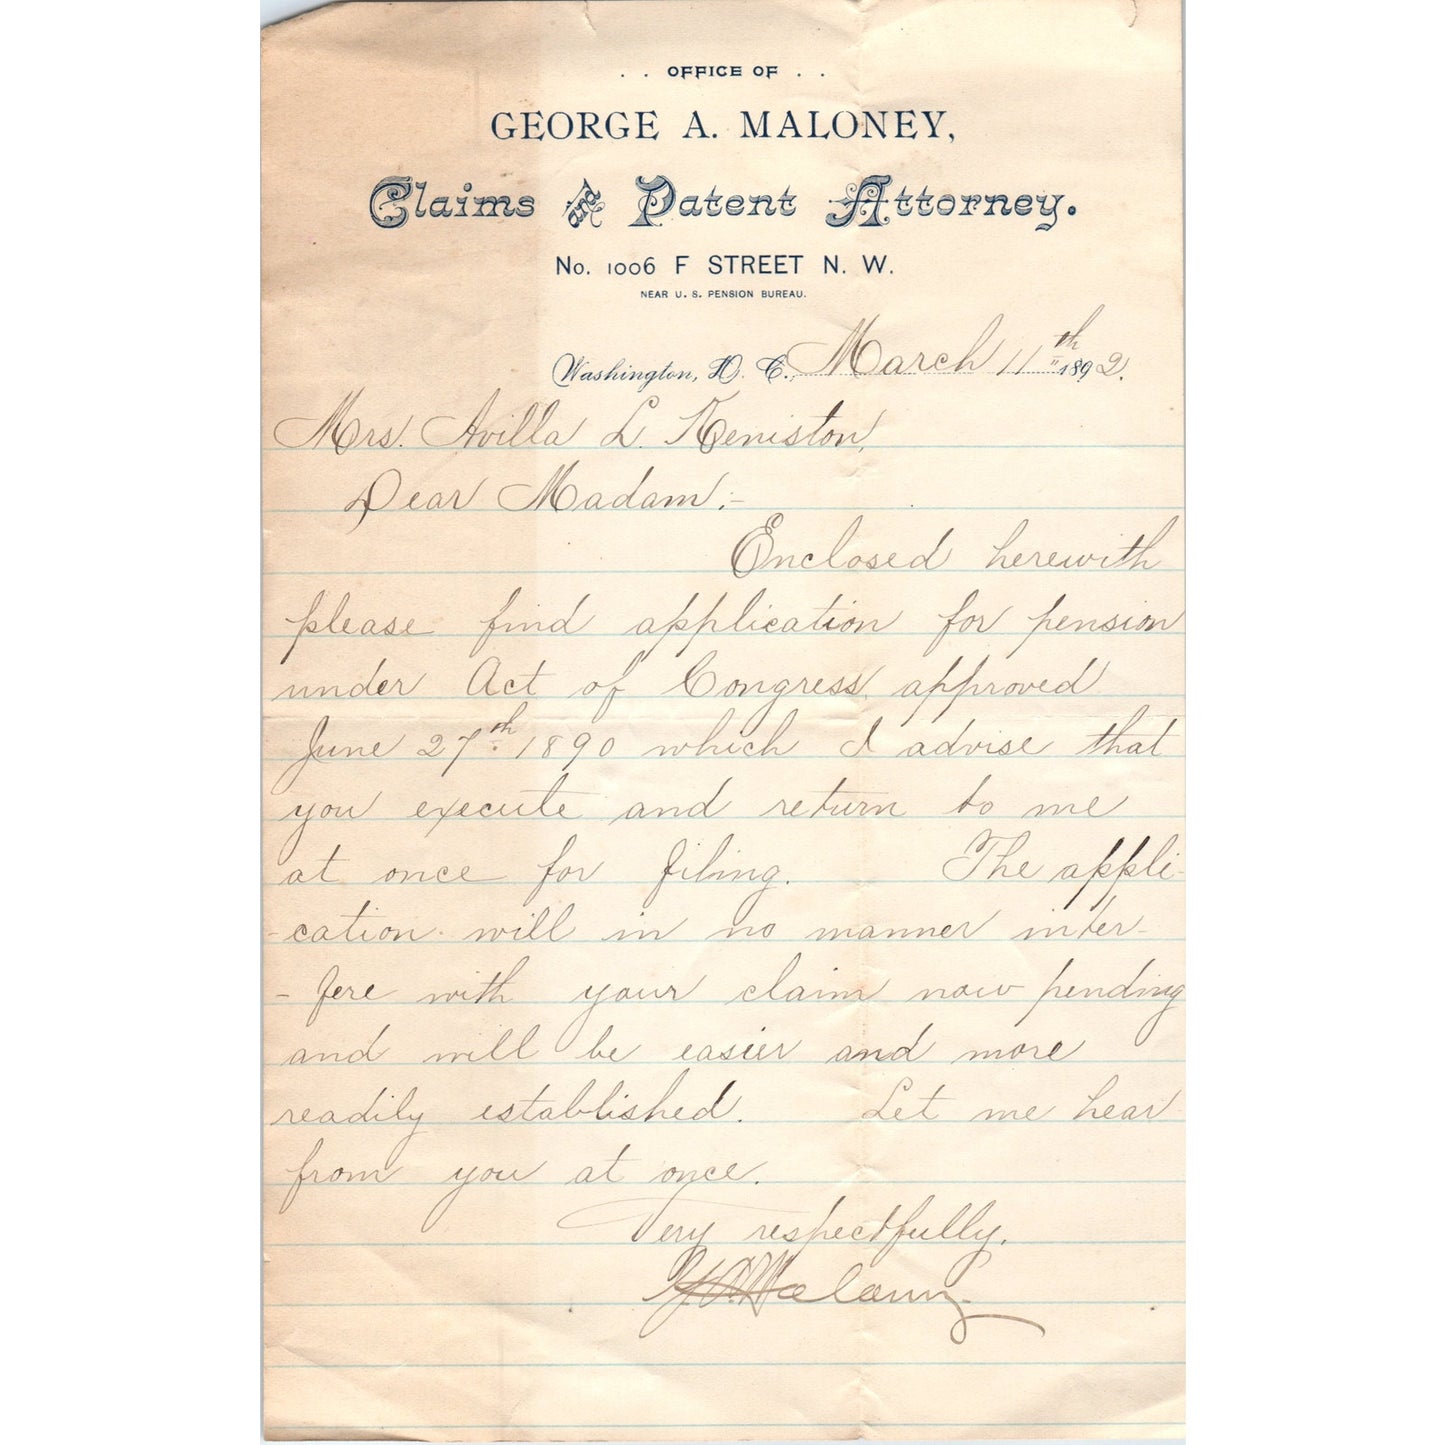 . . OFFICE OF . .
GEORGE A. MALONEY,
Claims and Patent Attorney.
No. 1006 F STREET N. W.
NEAR U. S. PENSION BUREAU.
Washington, D. C., March 11th 1892.
Mrs. Avilla L. Keniston,
Dear Madam:-
Enclosed herewith
please find application for pension
under Act of Congress, approved
June 27th 1890 which I advise that
you execute and return to me
at once for filing. The appli-
-cation will in no manner inter-
-fere with your claim now pending
and will be easier and more
readily established. Let me hear
from you at once.
Very respectfully,
G. A. Maloney